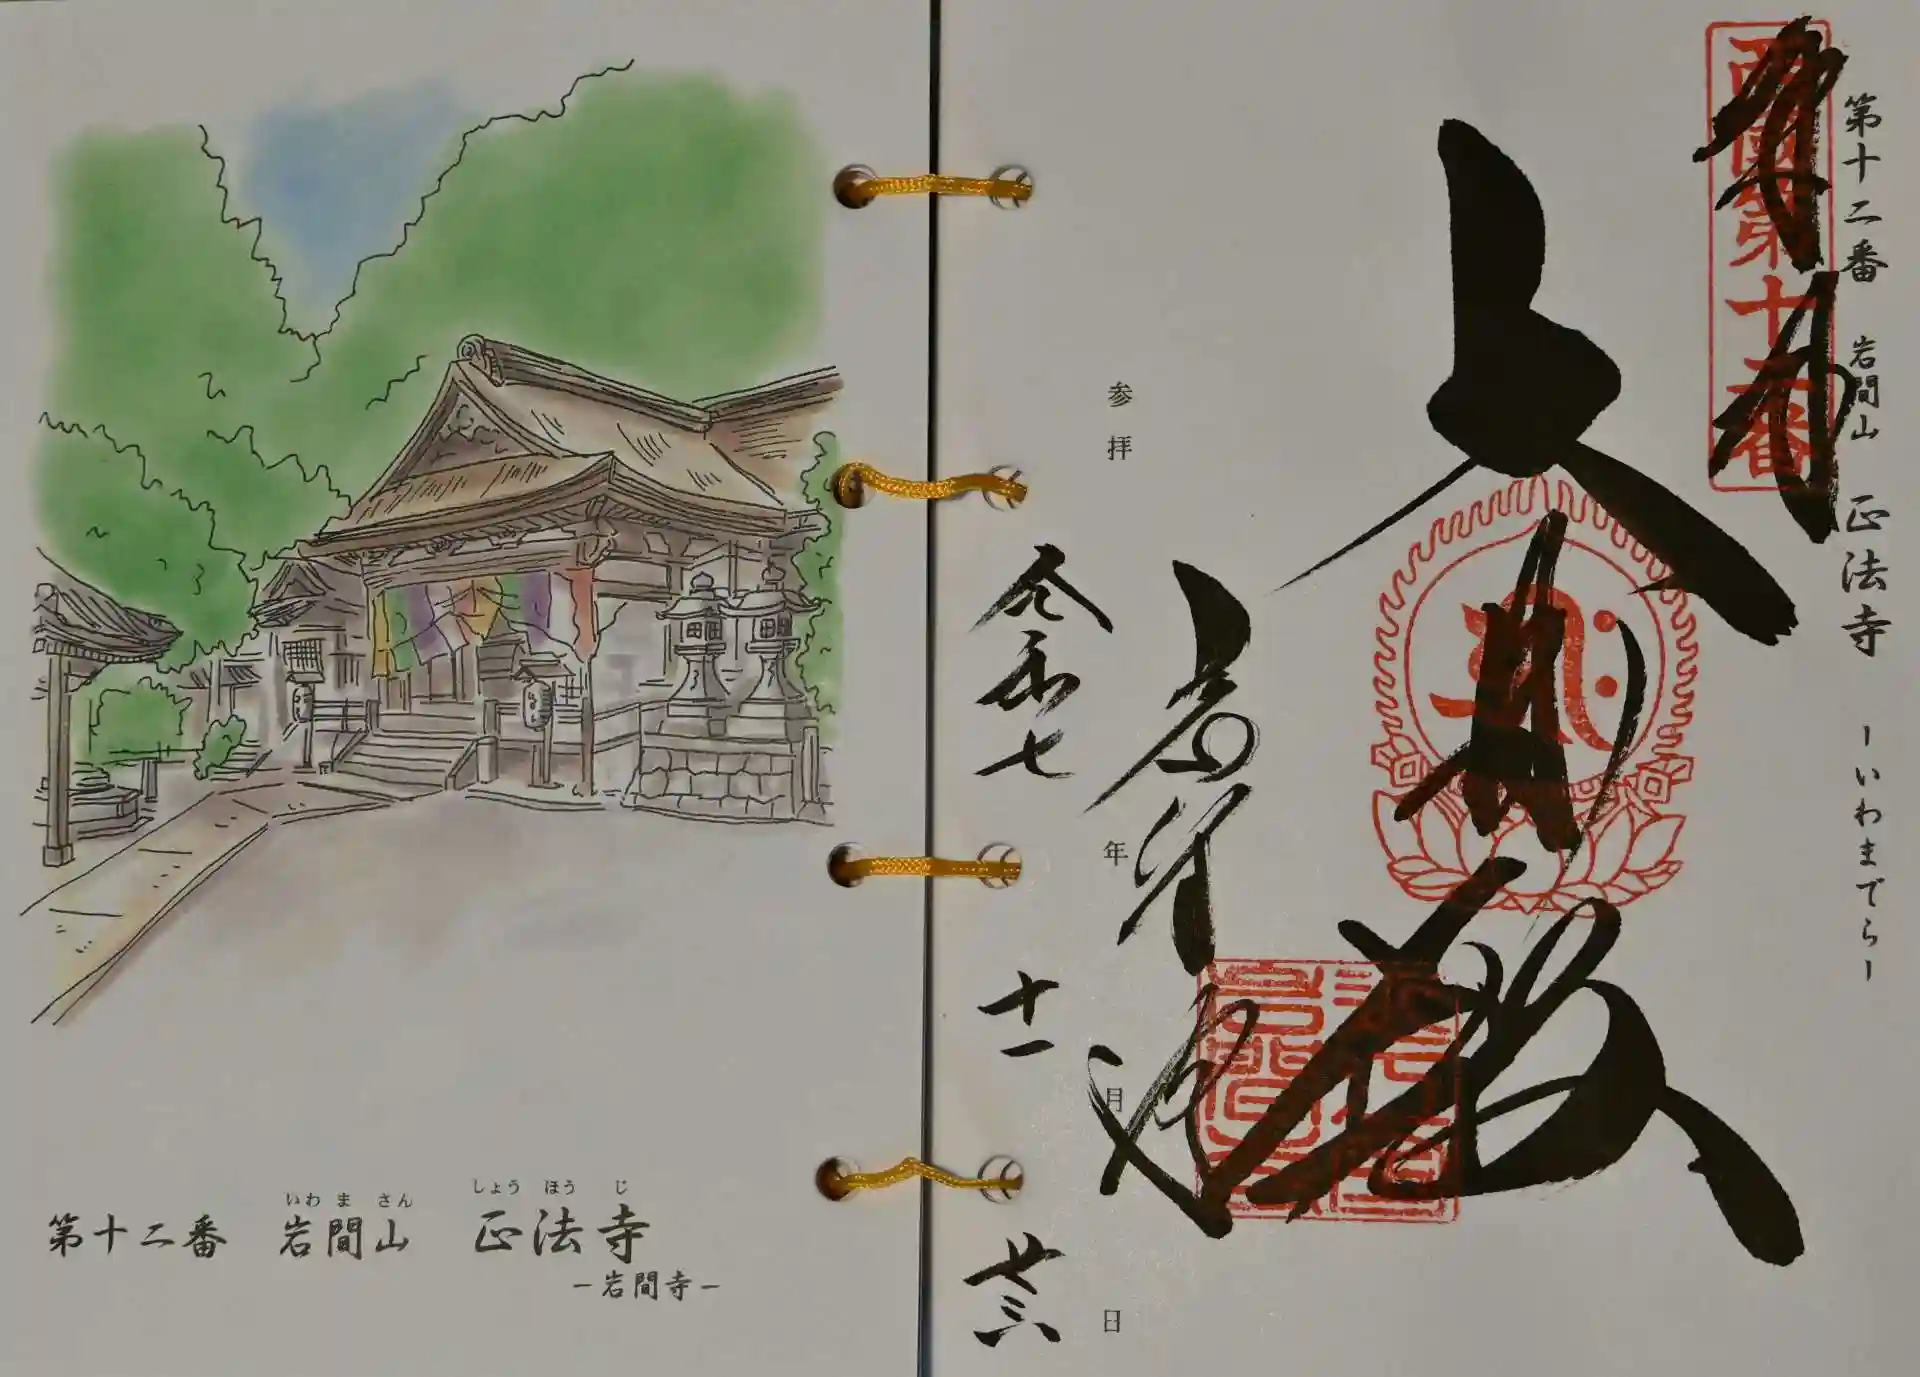 第十二番 岩間山 正法寺 -いわまでら-
奉拝
西國第十二番
大悲殿
岩間寺
参拝 年 月 日
令和七 十一 廿三
いわ ま さん しょう ほう じ
第十二番 岩間山 正法寺
-岩間寺-